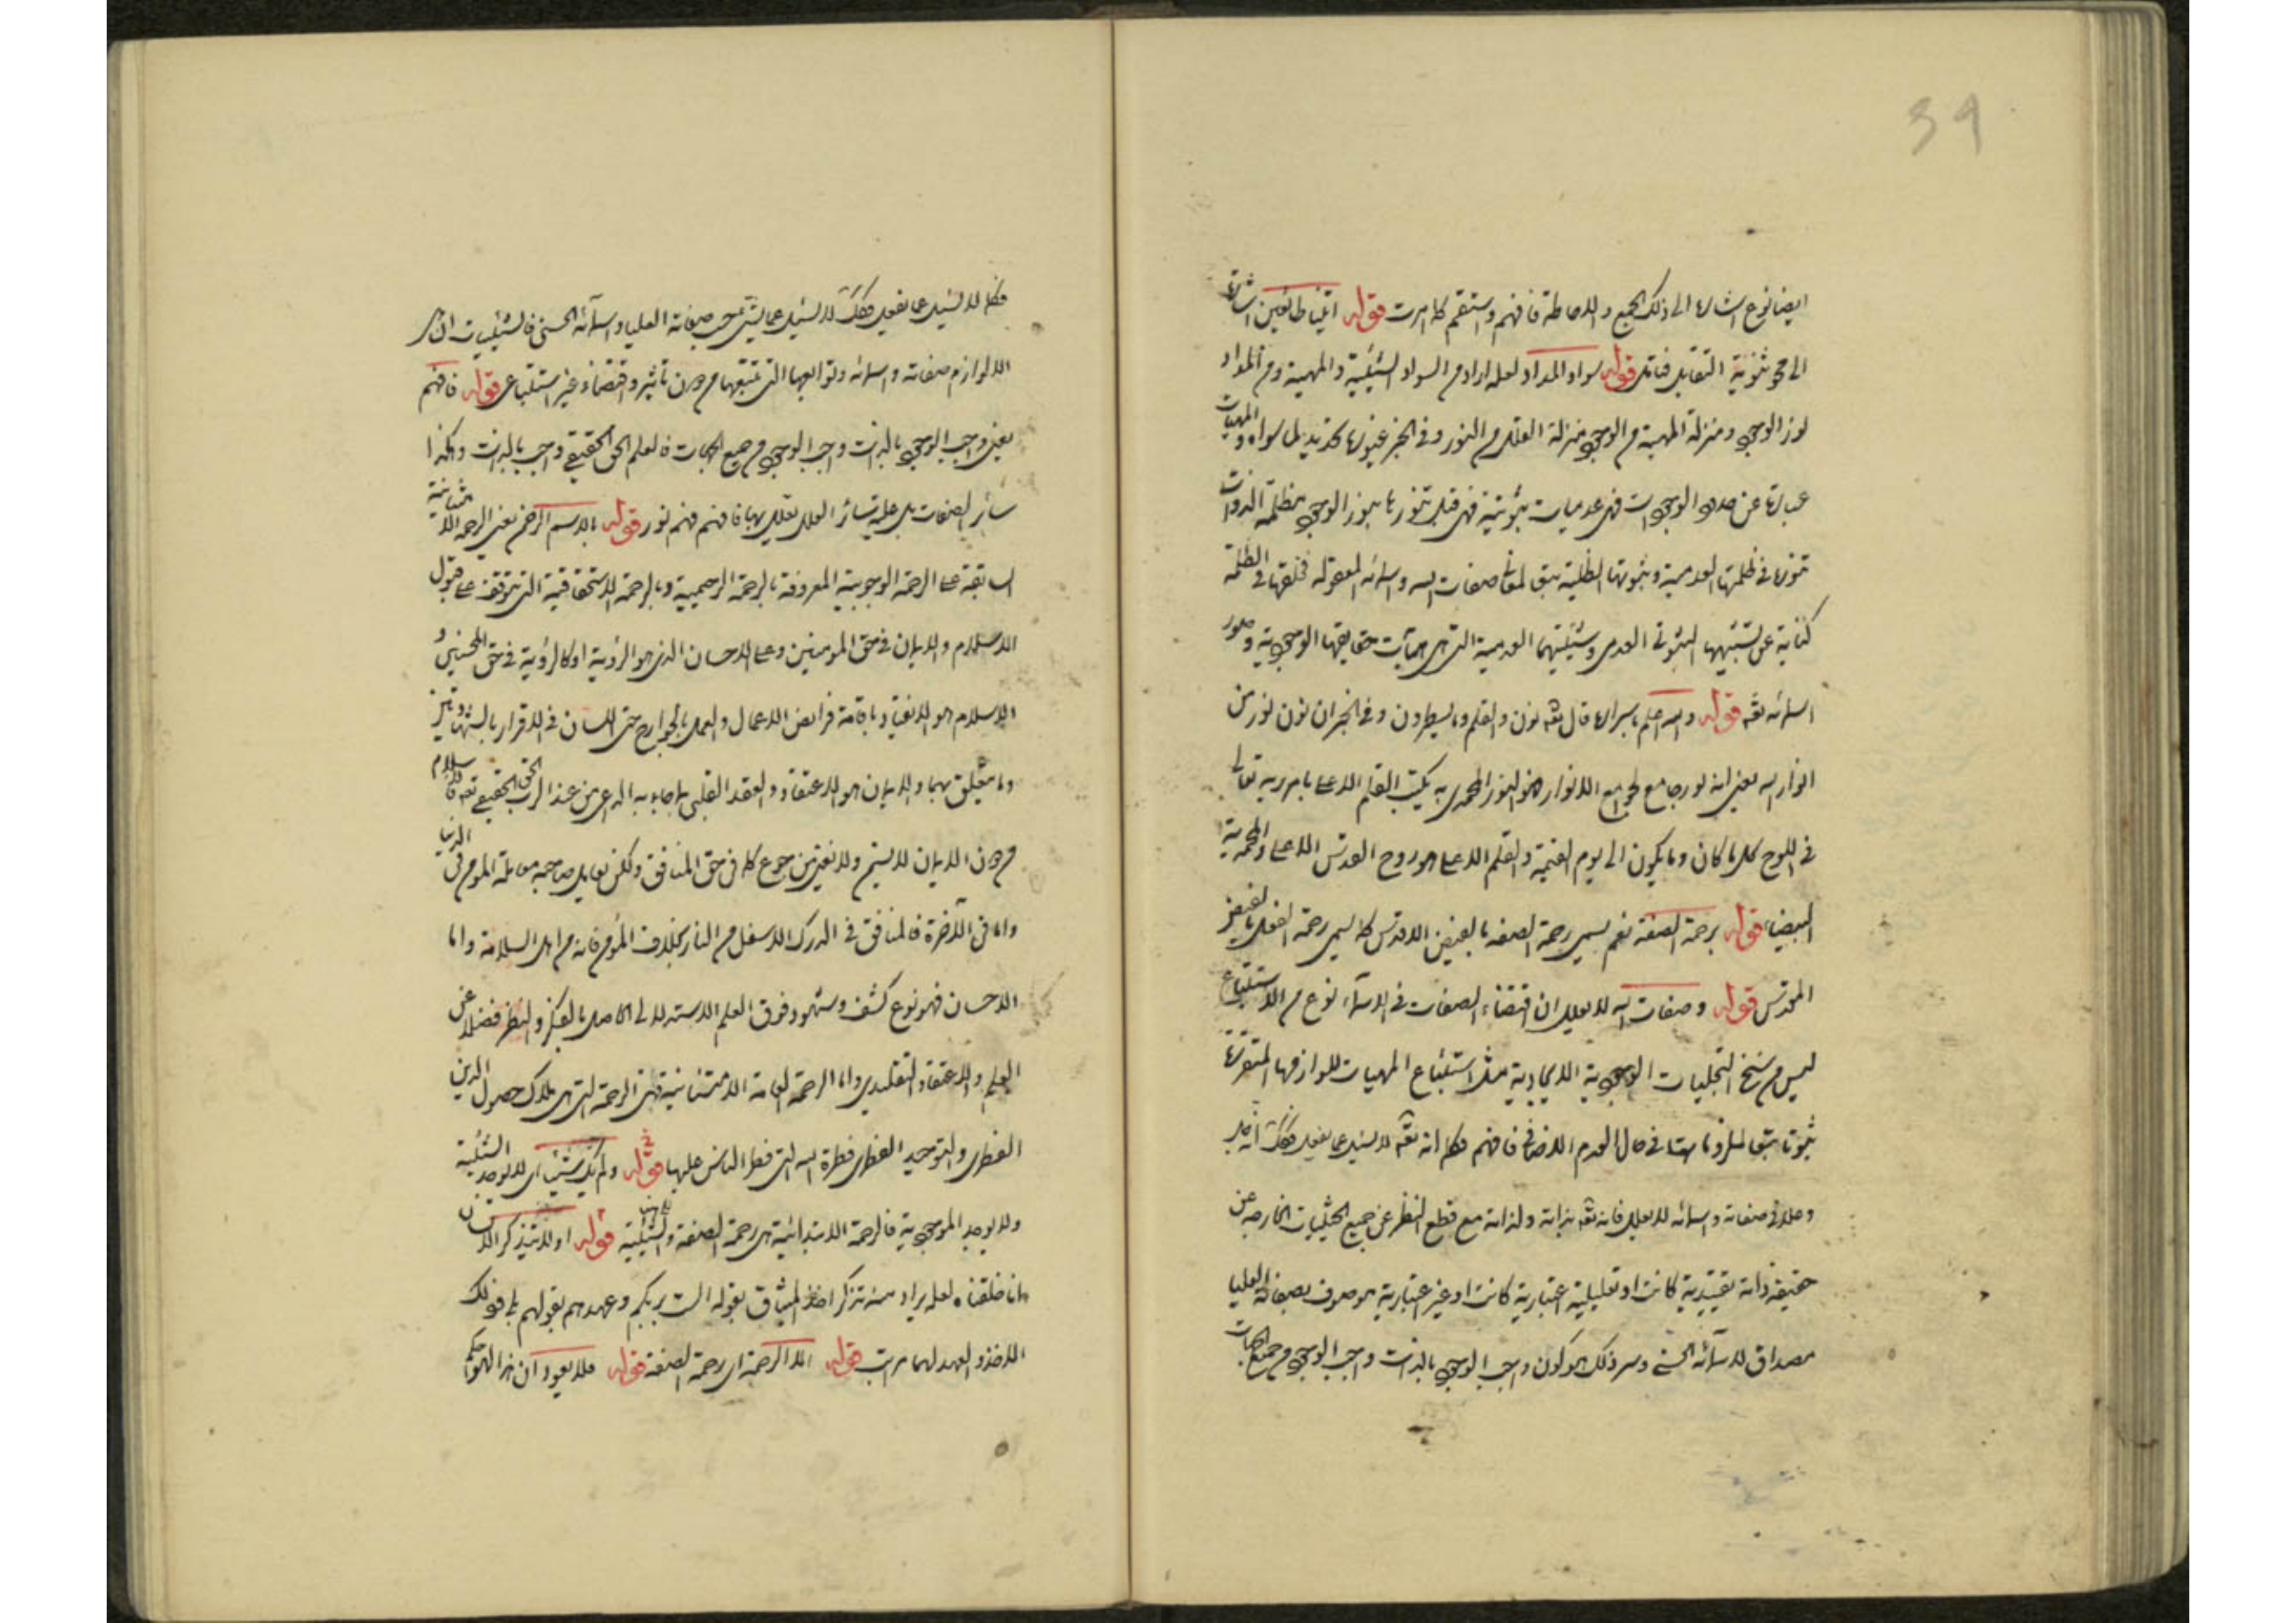 39
ايضا نوع اشارة الى ذلك الجمع والاحاطة فافهم واستقم كما امرت قوله اتينا طائعين اشارة
الى محو ثنوية التقابل فتامل قوله سواد المداد لعله اراد من السواد الشيئية والمهية ومن المداد
نور الوجود ومنزلة المهية من الوجود منزلة الظل من النور وفى الخبر
عبارة عن حدود الوجودات فهى عدميات ثبوتية فهى قبل تنورها بنور الوجود مظلمة الذوات
فى ظلمتها العدمية وثبوتها الظلية صفات الله واسمائه المعقولة فخلقها فى الظلمة
كناية عن الثبوتى العدمى وشيئيتها العدمية التى هى حقايقها الوجودية وصور
اسمائه تعه قوله والله اعلم باسراره قال تعه نون والقلم وما يسطرون وفى الخبر ان نون نور من
انوار الله يعنى انه نور جامع لجوامع الانوار هو النور المحمدى به يكتب القلم الاعلى بامر ربه تعالى
فى اللوح كل ما كان وما يكون الى يوم القيمة والقلم الاعلى هو روح القدس الاعلى والمحمدية
البيضاء قوله برحمة الصفة نعم يسمى رحمة الصفة بالفيض الاقدس كما يسمى رحمة الفعل بالفيض
المقدس قوله وصفات الله لا يعلل ان اقتضاء الصفات فى الاسماء نوع من الاستتباع
ليس من سنخ التجليات الوجودية الايجادية مثل استتباع المهيات للوازمها المتقررة
ثبوتا فى حال العدم الاضافى فافهم فكما انه تعه لا يسئل عما يفعل فكك
وجلاله فى صفاته واسمائه لا يعلل فانه تعه بذاته ولذاته مع قطع النظر عن جميع الحيثيات الخارجة عن
حقيقة ذاته تقييدية كانت او تعليلية اعتبارية كانت او غير اعتبارية موصوف بصفاته العليا
مصداق لاسمائه الحسنى وسر ذلك هو كون واجب الوجود بالذات واجب الوجود من جميع الجهات
فكما لا يسئل عما يفعل فكك لا يسئل عما صفاته العليا واسمائه الحسنى
اللوازم صفاته واسمائه وتوابعها التى تتبعها من دون تاثير واقتضاء غير استتباعى قوله فافهم
يعنى واجب الوجود بالذات واجب الوجود من جميع الجهات فالعلم الحق الحقيقى واجب بالذات وهكذا
سائر الصفات بل علية سائر العلل تعلل بها فافهم فهم نور قوله بالاسم الرحمن يعنى الرحمة الامتنانية
السابقة على الرحمة الوجوبية المعروفة بالرحمة الرحيمية وبالرحمة الاستحقاقية التى تتوقف على قبول
الاسلام والايمان فى حق المومنين وعلى الاحسان الذى هو الرؤية او كالرؤية فى حق المحسنين و
الاسلام هو الانقياد باقامة فرائض الاعمال والعمل بالجوارح حتى اللسان فى الاقرار بالشهادتين
وما يتعلق بهما والايمان هو الاعتقاد والعقد القلبى بما جاء به الداعى من عند الرب الحق الحقيقى تعه فالاسلام
من دون الايمان لا يسمن ولا يغنى من جوع كما فى حق المنافق ولكن يعامل صاحبه معاملة المومن فى الدنيا
واما فى الآخرة فالمنافق فى الدرك الاسفل من النار بخلاف المؤمن فانه من اهل السلامة واما
الاحسان فهو نوع كشف وشهود فوق العلم الاستدلالى الحاصل بالفكر والنظر فضلا عن
العلم والاعتقاد التقليدى واما الرحمة العامة الامتنانية فهى الرحمة التى هى ملاك حصول الدين
الفطرى والتوحيد الفطرى فطرة الله التى فطر الناس عليها قوله ولم يك شيئا اى لا بوجه الشيئية
ولا بوجه الموجودية فالرحمة الابتدائية هى رحمة الصفة والشيئية قوله اولا يتذكر الانسان
انا خلقناه لعله يراد منه تذكر اخذ الميثاق بقوله الست بربكم وعهدهم بقولهم بلى فذلك
الاخذ والعهد لهما مراتب قوله الا الرحمة اى رحمة الصفة قوله فلا يعود ان هذا